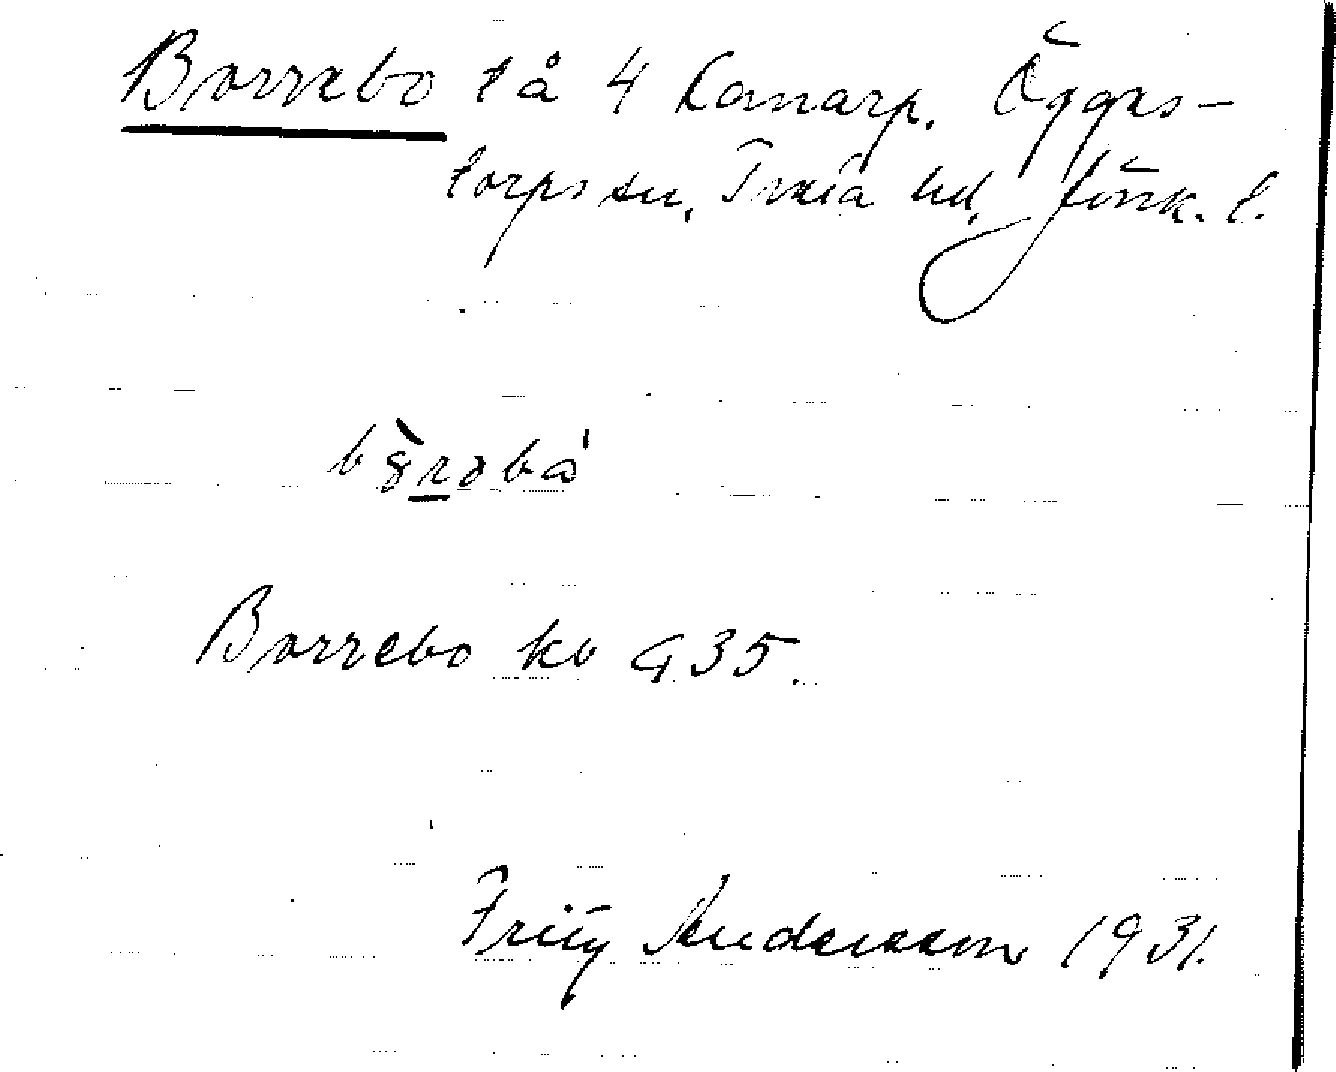 Borrebo lå 4 Lomarp. Öggers-
torps sn, Tveta hd, Jönk. l.
Borrebo kb G 35.
Fritz Andersson 1931.